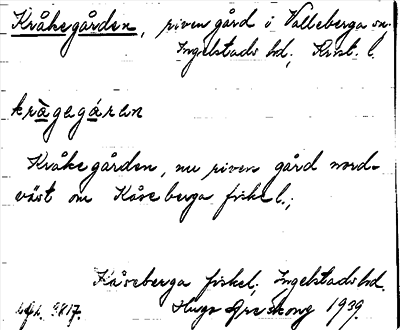 Kråkegården, riven gård i Valleberga sn.
Ingelstads hd; Krist. l.
kràgagáran
Kråkegården, nu riven gård nord-
väst om Kåseberga fiskel.;
Kåseberga fiskel. Ingelstads hd.
3817. Hugo Areskoug 1939.